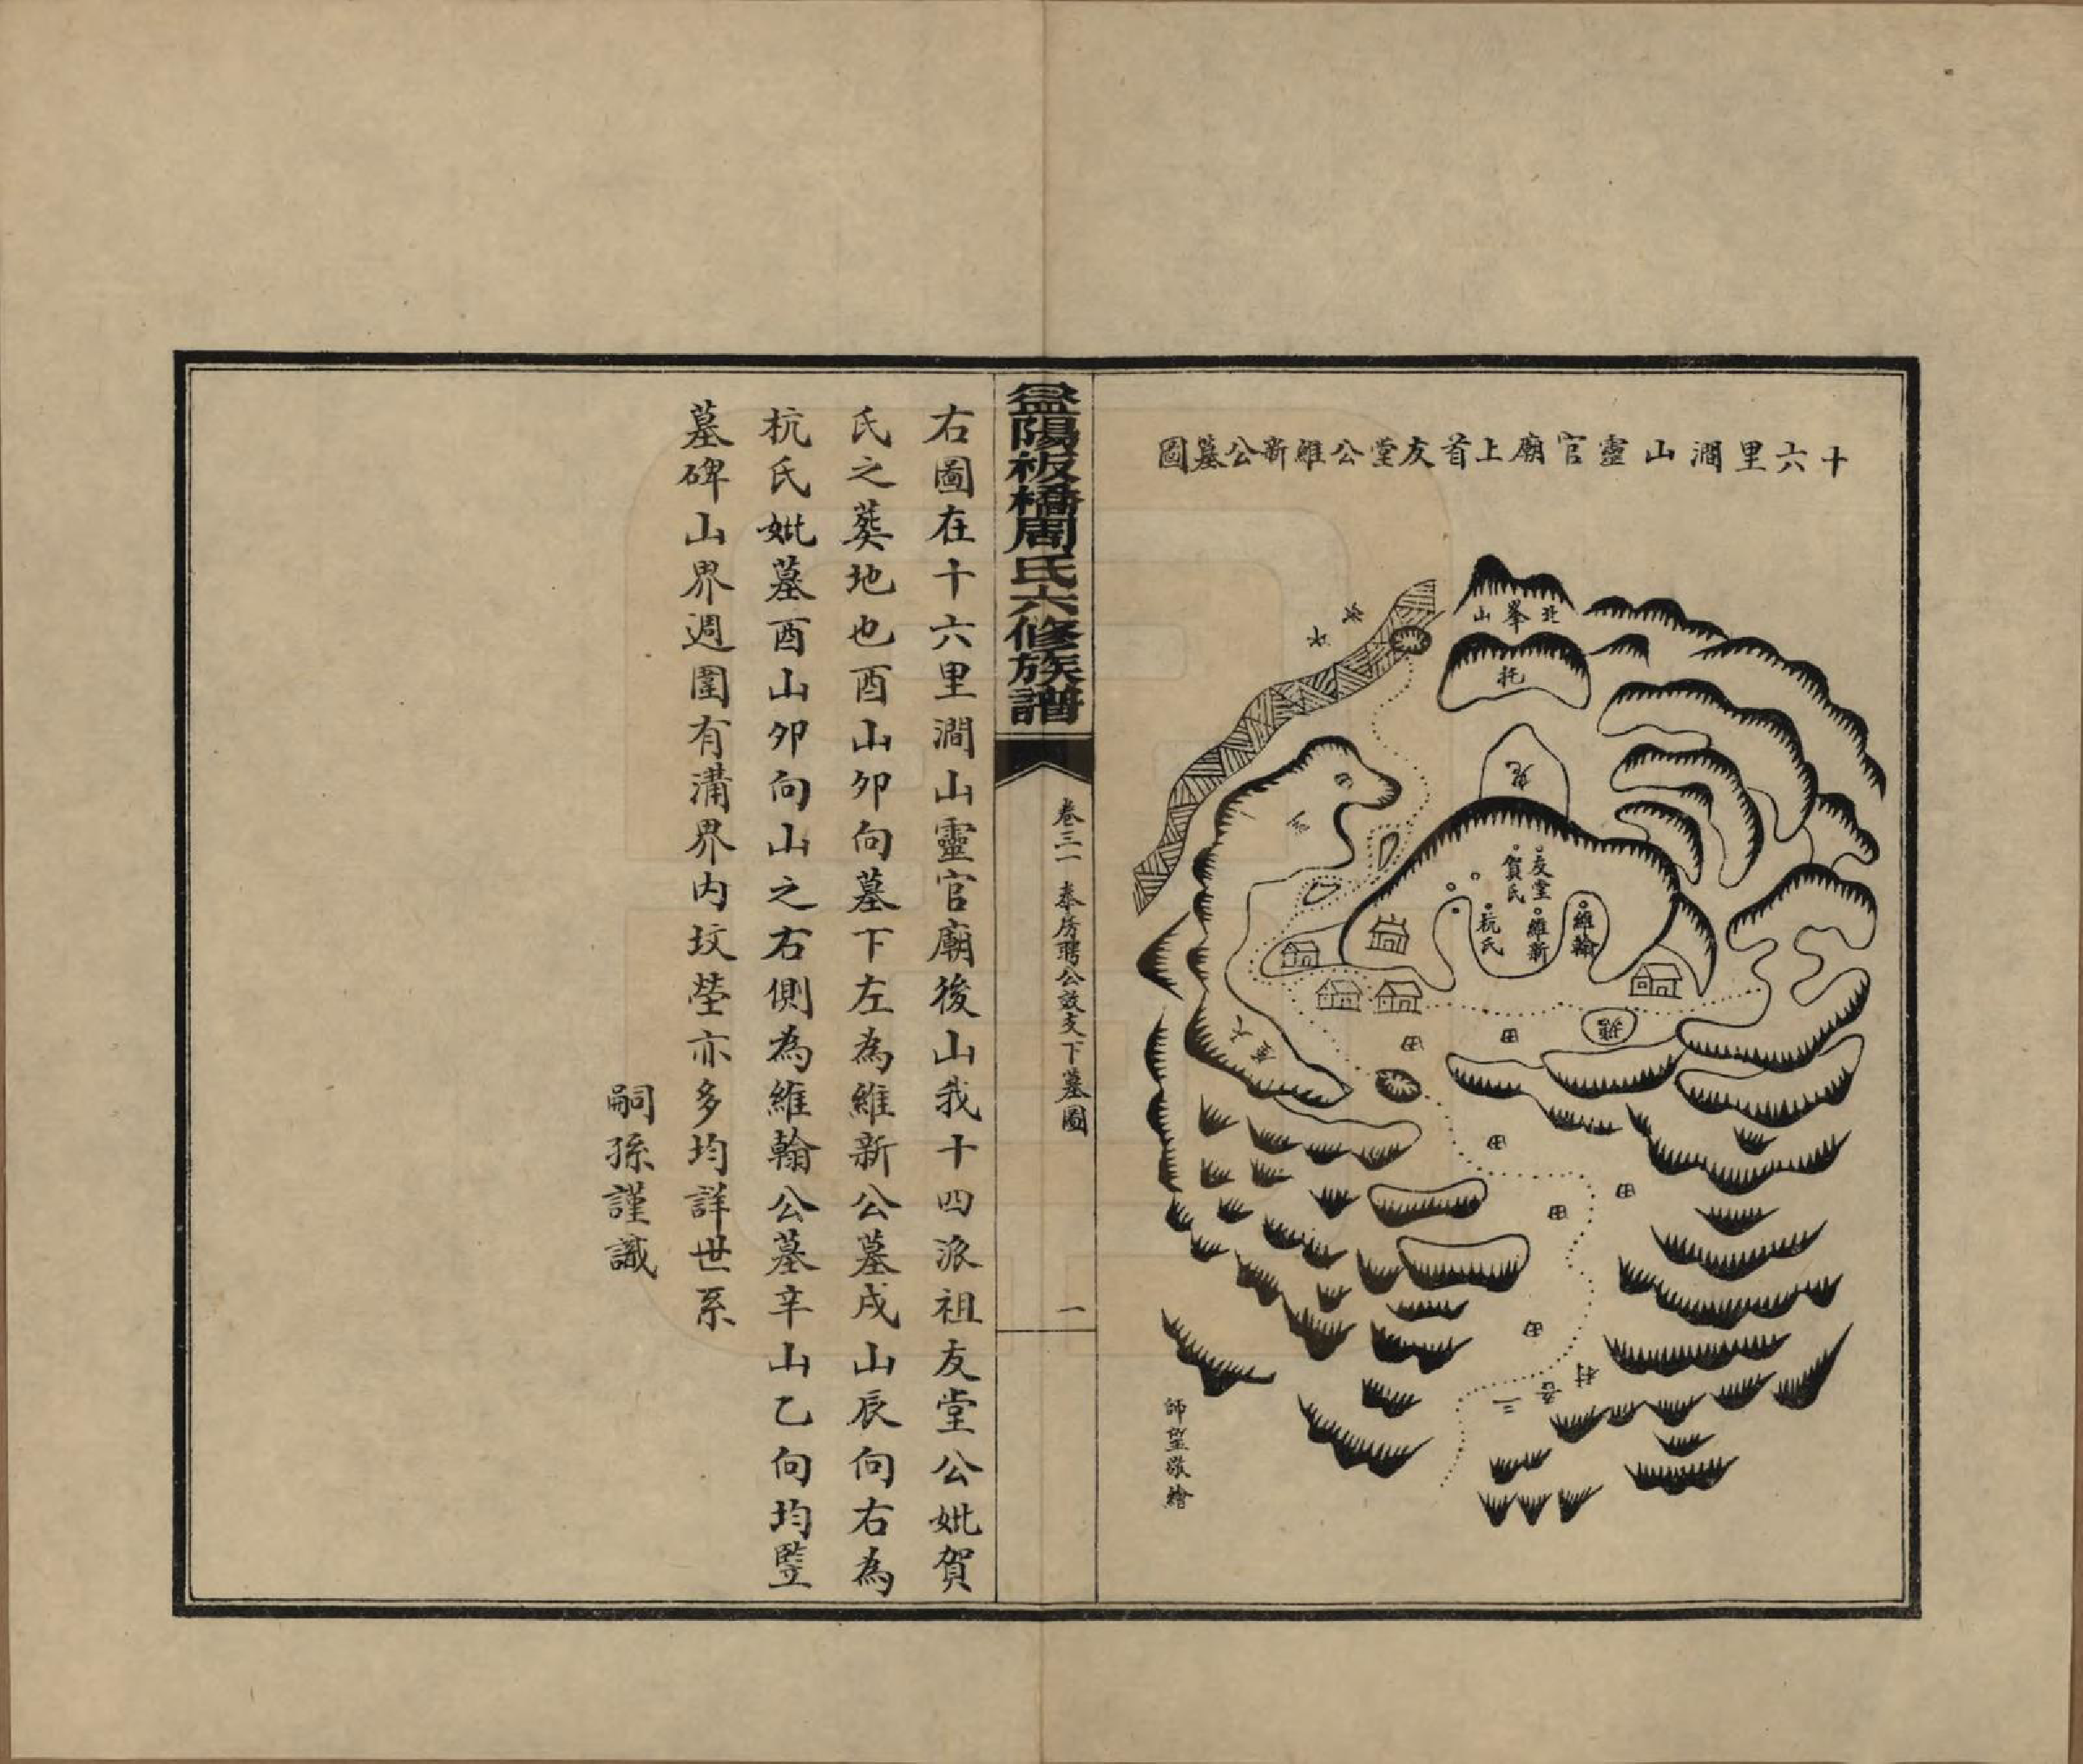 十六里澗山靈官廟上首友堂公維新公墓圖
北峯山
托
友堂
賀氏
維新
杭氏
維翰
田
田
田
田
田
田
三巷村
師望敬繪
益陽板橋周氏六修族譜
卷三一 奉房聘公效支下墓圖
一
右圖在十六里澗山靈官廟後山我十四派祖友堂公妣賀
氏之葬地也酉山卯向墓下左為維新公墓戌山辰向右為
杭氏妣墓酉山卯向山之右側為維翰公墓辛山乙向均豎
墓碑山界週圍有溝界內坟塋亦多均詳世系
嗣孫謹識